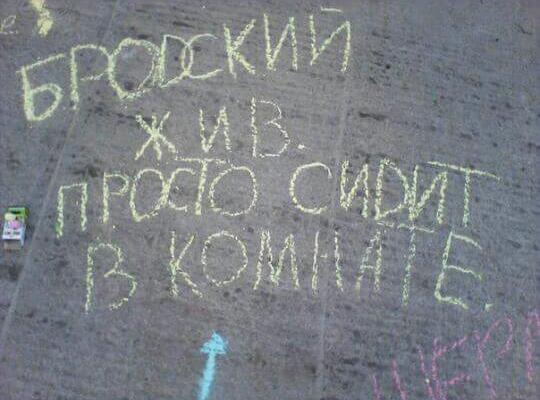 БРОДСКИЙ
ЖИВ.
ПРОСТО СИДИТ
В КОМНАТЕ.